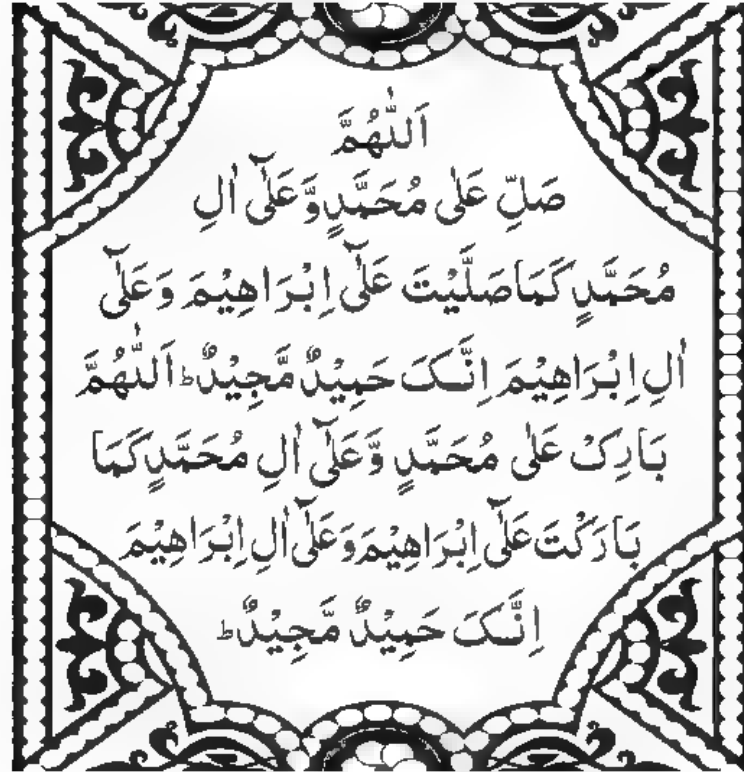 اَللّٰهُمَّ
صَلِّ عَلٰی مُحَمَّدٍ وَّعَلٰٓی اٰلِ
مُحَمَّدٍ کَمَا صَلَّیْتَ عَلٰٓی اِبْرَاهِیْمَ وَعَلٰٓی
اٰلِ اِبْرَاهِیْمَ اِنَّکَ حَمِیْدٌ مَّجِیْدٌ ط اَللّٰهُمَّ
بَارِکْ عَلٰی مُحَمَّدٍ وَّعَلٰٓی اٰلِ مُحَمَّدٍ کَمَا
بَارَکْتَ عَلٰٓی اِبْرَاهِیْمَ وَعَلٰٓی اٰلِ اِبْرَاهِیْمَ
اِنَّکَ حَمِیْدٌ مَّجِیْدٌ ط